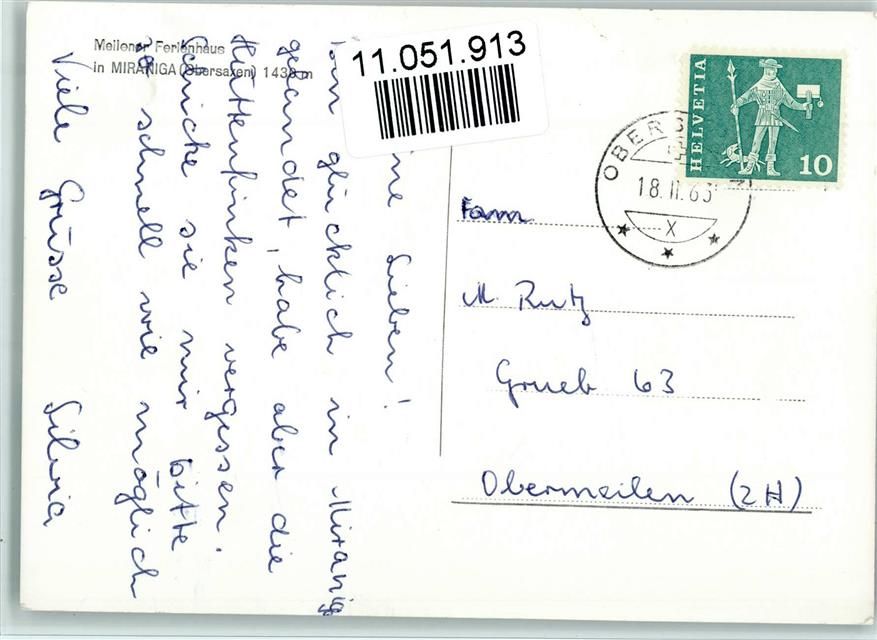 Meilener Ferienhaus
in MIRANIGA (Obersaxen) 1438 m
11.051.913
HELVETIA
10
OBERS
18.II.63
X
ine Lieben!
bin glücklich in Miranig
gelandet, habe aber die
Hüttenfinken vergessen.
Schicke sie mir bitte
so schnell wie möglich
Viele Grüsse Silvia
Fam
M. Rutz
Grueb 63
Obermeilen (ZH)